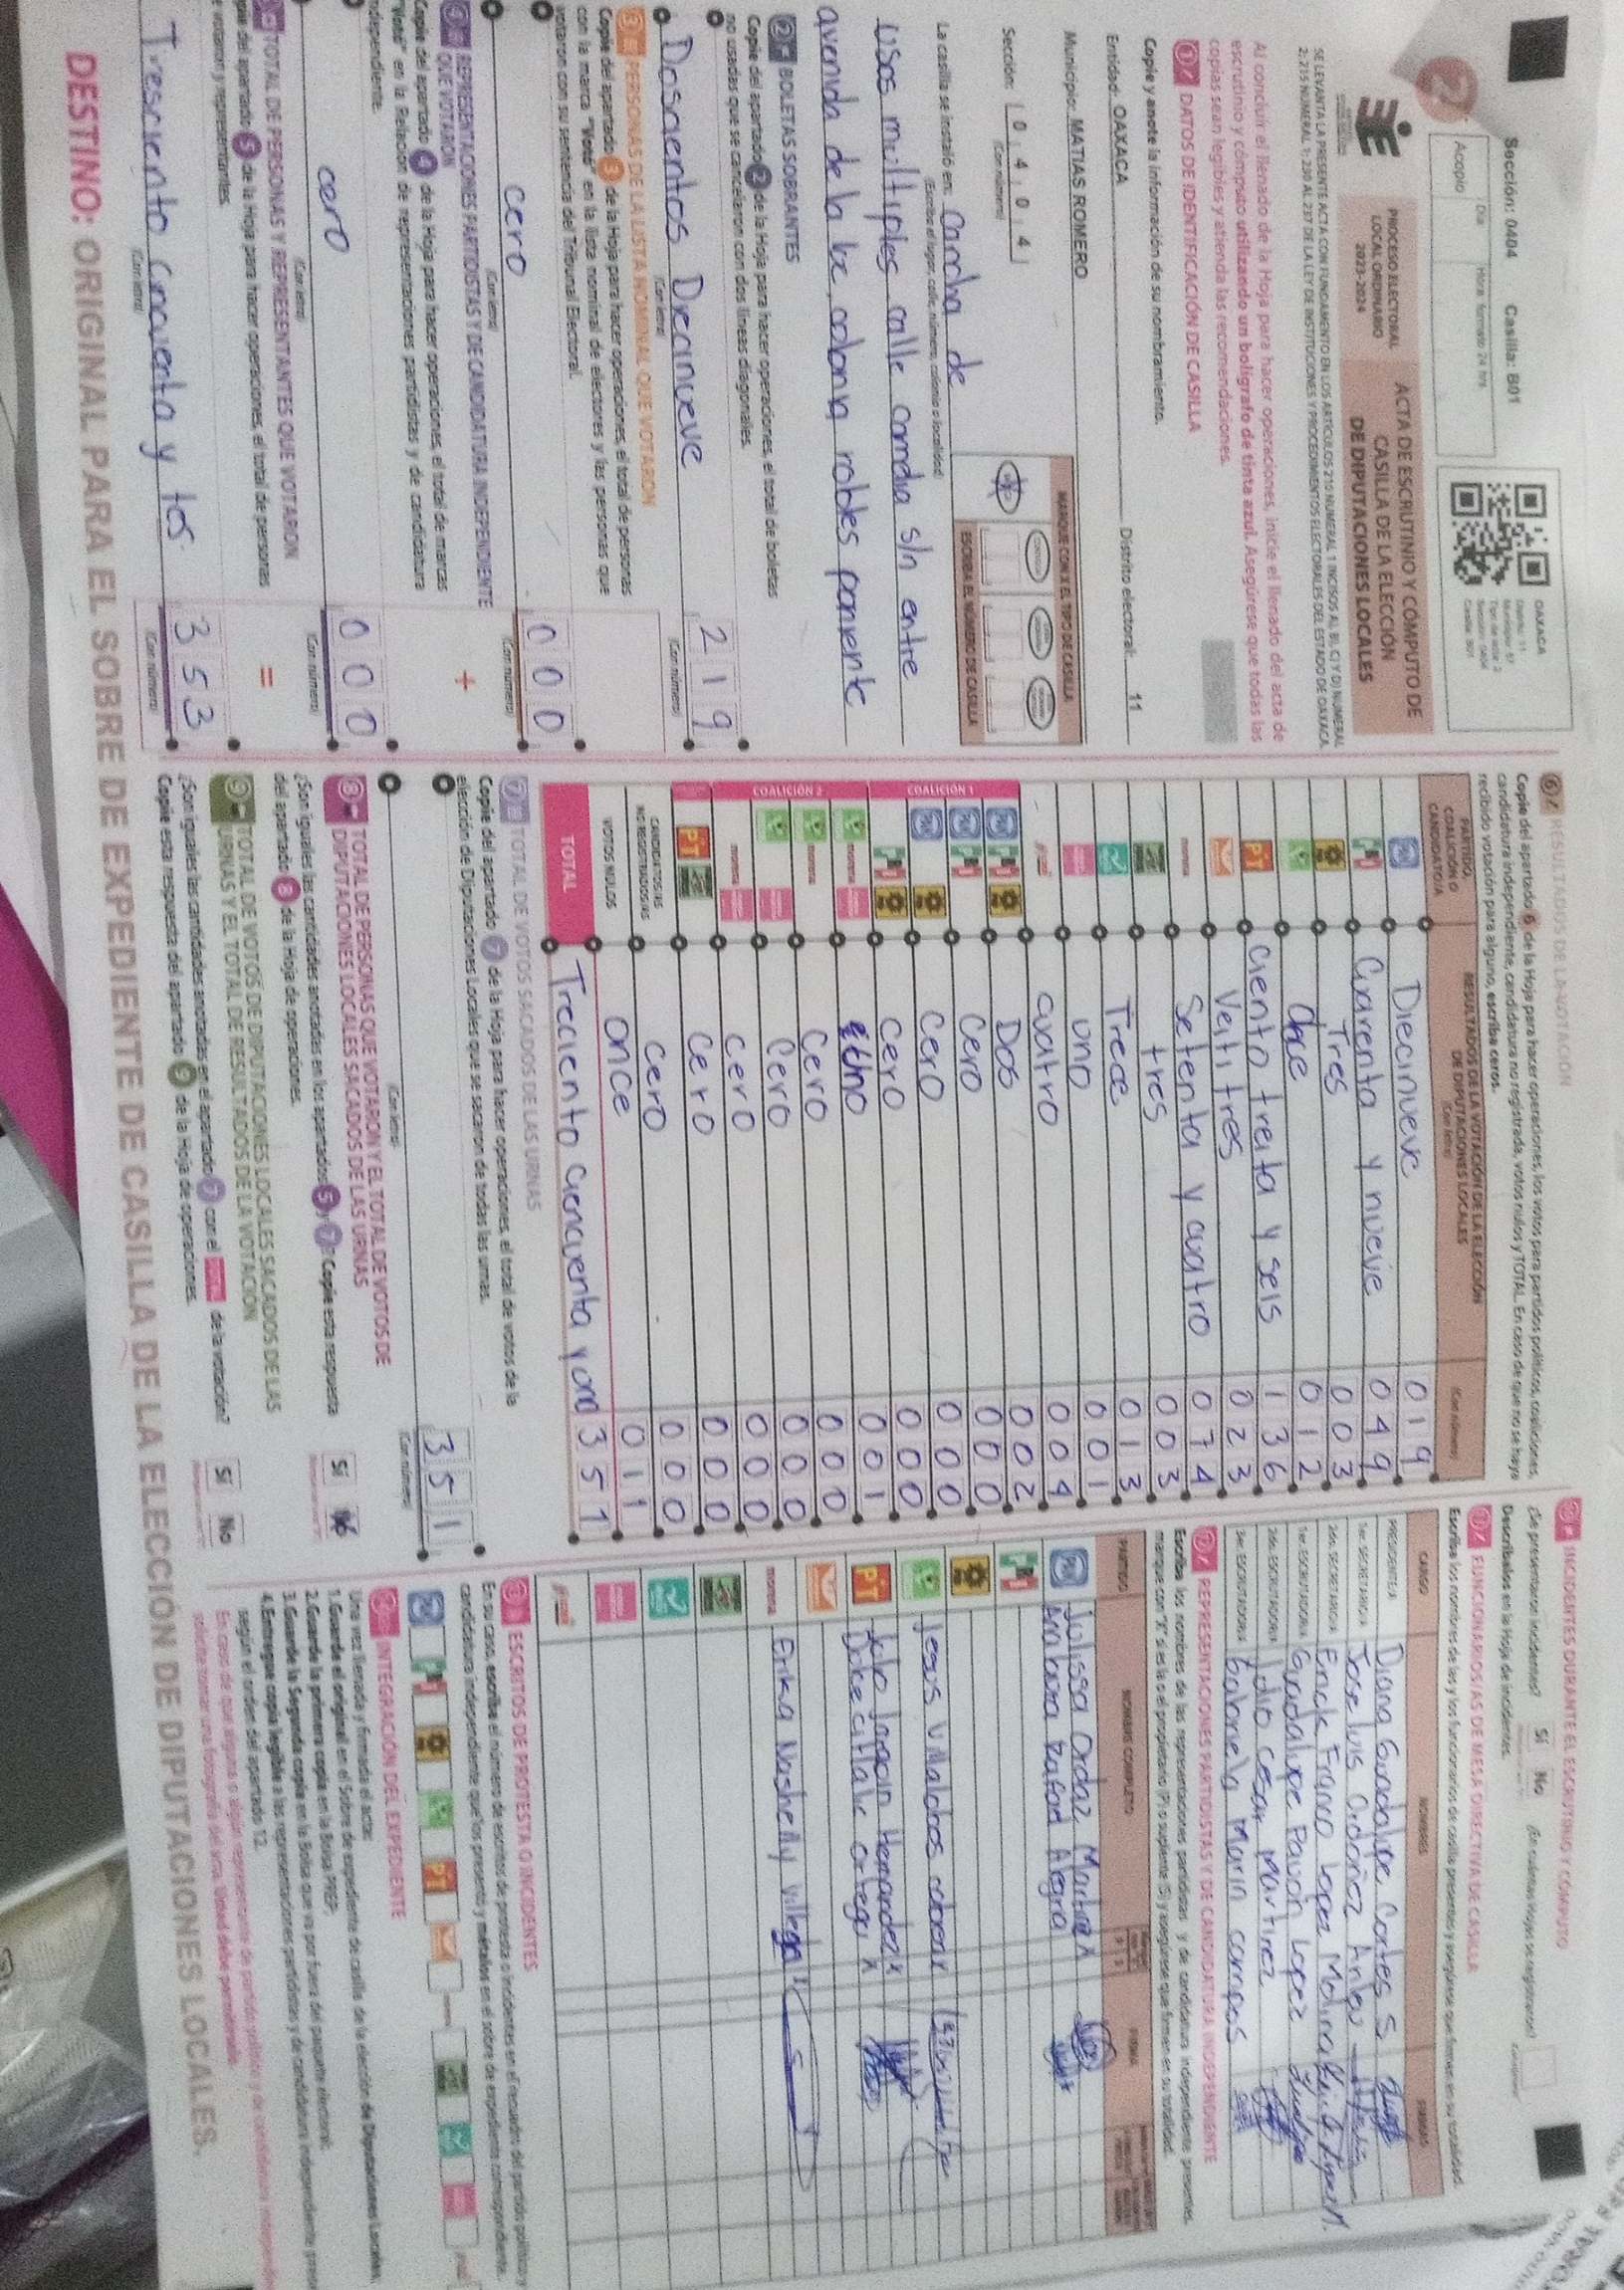 Sección: 0404 Casilla: B01
Acopio
Día
Hora formato 24 hrs
OAXACA
2
PROCESO ELECTORAL
LOCAL ORDINARIO
2023-2024
ACTA DE ESCRUTINIO Y CÓMPUTO DE
CASILLA DE LA ELECCIÓN
DE DIPUTACIONES LOCALES
SE LEVANTA LA PRESENTE ACTA CON FUNDAMENTO EN LOS ARTÍCULOS
Al concluir el llenado de la Hoja para hacer operaciones, inicie el llenado del acta de
escrutinio y cómputo utilizando un bolígrafo de tinta azul. Asegúrese que todas las
copias sean legibles y atienda las recomendaciones.
1 DATOS DE IDENTIFICACIÓN DE CASILLA
Copie y anote la información de su nombramiento.
Entidad: OAXACA Distrito electoral: 11
Municipio: MATIAS ROMERO
Sección: 0 4 0 4
(Con número)
MARQUE CON X EL TIPO DE CASILLA
ESCRIBA EL NÚMERO DE CASILLA
La casilla se instaló en: Cancha de
(Escriba el lugar, calle, número, colonia o localidad)
usos multiples calle s/n entre
avenida de la colonia robles poniente
2 BOLETAS SOBRANTES
Copie del apartado 2 de la Hoja para hacer operaciones, el total de boletas
no usadas que se cancelaron con dos líneas diagonales.
Doscientos Diecinueve 2 1 9
(Con letra) (Con número)
3 PERSONAS DE LA LISTA NOMINAL QUE VOTARON
Copie del apartado 3 de la Hoja para hacer operaciones, el total de personas
con la marca "Votó" en la lista nominal de electores y las personas que
votaron con su sentencia del Tribunal Electoral.
cero 0 0 0
(Con letra) (Con número)
4 REPRESENTACIONES PARTIDISTAS Y DE CANDIDATURA INDEPENDIENTE
QUE VOTARON
+
Copie del apartado 4 de la Hoja para hacer operaciones, el total de marcas
"Votó" en la Relación de representaciones partidistas y de candidatura
independiente.
cero 0 0 0
(Con letra) (Con número)
TOTAL DE PERSONAS Y REPRESENTANTES QUE VOTARON
=
del apartado 5 de la Hoja para hacer operaciones, el total de personas
votaron y representantes.
Tresciento Cincuenta y tes 3 5 3
(Con letra) (Con número)
6 RESULTADOS DE LA VOTACIÓN
Copie del apartado 6 de la Hoja para hacer operaciones, los votos para partidos políticos, coaliciones,
candidatura independiente, candidatura no registrada, votos nulos y TOTAL. En caso de que no se haya
recibido votación para alguno, escriba ceros.
PARTIDO,
COALICIÓN O
CANDIDATO/A
RESULTADOS DE LA VOTACIÓN DE LA ELECCIÓN
DE DIPUTACIONES LOCALES
(Con letra) (Con número)
PAN Diecinueve 0 1 9
PRI Cuarenta y nueve 0 4 9
Tres 0 0 3
Doce 0 1 2
PT Ciento treita y seis 1 3 6
Veiti tres 0 2 3
morena Setenta y cuatro 0 7 4
tres 0 0 3
Trece 0 1 3
uno 0 0 1
cuatro 0 0 4
COALICIÓN 1
Dos 0 0 2
Cero 0 0 0
Cero 0 0 0
Cero 0 0 0
COALICIÓN 2
Uno 0 0 1
Cero 0 0 0
Cero 0 0 0
Cero 0 0 0
PT Cero 0 0 0
CANDIDATOS/AS
NO REGISTRADOS/AS Cero 0 0 0
VOTOS NULOS Once 0 1 1
TOTAL Treciento Ciencuenta y uno 3 5 1
7 TOTAL DE VOTOS SACADOS DE LAS URNAS
Copie del apartado 7 de la Hoja para hacer operaciones, el total de votos de la
elección de Diputaciones Locales que se sacaron de todas las urnas.
3 5 1
(Con letra) (Con número)
8 TOTAL DE PERSONAS QUE VOTARON Y EL TOTAL DE VOTOS DE
DIPUTACIONES LOCALES SACADOS DE LAS URNAS
¿Son iguales las cantidades anotadas en los apartados 5 y 7? Copie esta respuesta
del apartado 8 de la Hoja de operaciones.
Sí No
9 TOTAL DE VOTOS DE DIPUTACIONES LOCALES SACADOS DE LAS
URNAS Y EL TOTAL DE RESULTADOS DE LA VOTACIÓN
¿Son iguales las cantidades anotadas en el apartado 7 con el TOTAL de la votación?
Copie esta respuesta del apartado 9 de la Hoja de operaciones.
Sí No
INCIDENTES DURANTE EL ESCRUTINIO Y CÓMPUTO
¿Se presentaron incidentes? Sí No ¿En cuántas Hojas se registraron?
Descríbalos en la Hoja de incidentes.
FUNCIONARIOS/AS DE MESA DIRECTIVA DE CASILLA
Escriba los nombres de las y los funcionarios de casilla presentes y asegúrese que firmen en su totalidad.
CARGO NOMBRES FIRMAS
PRESIDENTE/A Diana Guadalupe Cortes S
1er. SECRETARIO/A Jose luis Ordoñez
2do. SECRETARIO/A Erick Franco Lopez Molina
1er. ESCRUTADOR/A Guadalupe Pavon Lopez
2do. ESCRUTADOR/A Julio Cesar Martinez
3er. ESCRUTADOR/A Gabriela Marin campos
REPRESENTACIONES PARTIDISTAS Y DE CANDIDATURA INDEPENDIENTE
Escriba los nombres de las representaciones partidistas y de candidatura independiente presentes,
marque con "X" si es la o el propietario (P) o suplente (S) y asegúrese que firmen en su totalidad.
PARTIDO NOMBRE COMPLETO FIRMA
Julissa Ordaz Martinez
Jesus Villalobos
PT
Hernandez
citlali ortega
morena Erika Nashelly villega
ESCRITOS DE PROTESTA O INCIDENTES
En su caso, escriba el número de escritos de protesta o incidentes en el recuadro del partido político y
candidatura independiente que los presentó y métalos en el sobre de expediente correspondiente.
INTEGRACIÓN DEL EXPEDIENTE
Una vez llenada y firmada el acta:
1. Guarde el original en el Sobre de expediente de casilla de la elección de Diputaciones Locales.
2. Guarde la primera copia en la Bolsa PREP.
3. Guarde la Segunda copia en la Bolsa que va por fuera del paquete electoral.
4. Entregue copia legible a las representaciones partidistas y de candidatura independiente
según el orden del apartado 12.
En caso de que alguna o algún representante de partido político y de candidatura
solicite tomar una fotografía del acta, Usted debe permitírselo.
DESTINO: ORIGINAL PARA EL SOBRE DE EXPEDIENTE DE CASILLA DE LA ELECCIÓN DE DIPUTACIONES LOCALES.